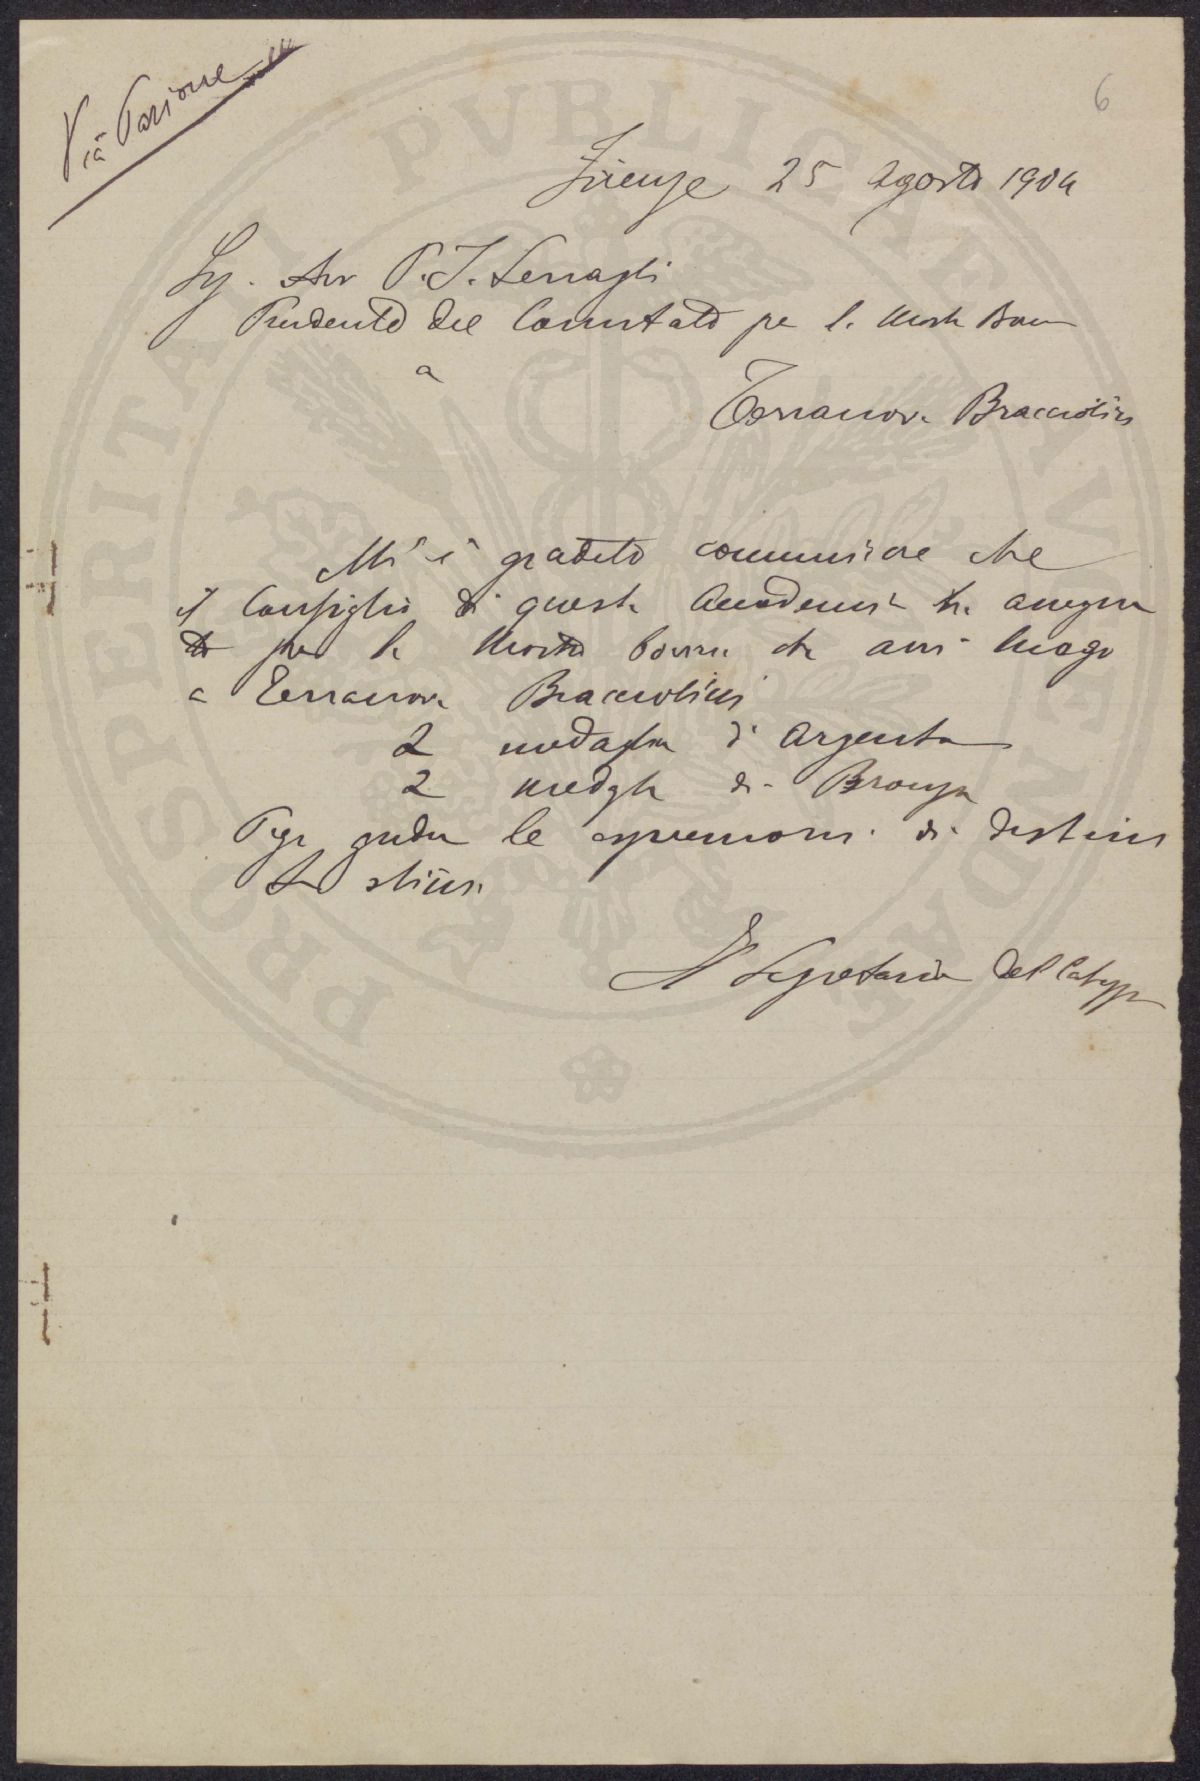 Via Parione
6
Firenze 25 Agosto 1904
Sig. Avv P. I. Serragli
Presidente del Comitato per la Mostra Bovina
a
Terranova Bracciolini
Mi è gradito comunicare che
il Consiglio di questa Accademia ha assegnato
per la Mostra bovina che avrà luogo
a Terranova Bracciolini
2 medaglie di Argento
2 medaglie di Bronzo
le espressioni di distinta
stima
Il Segretario del